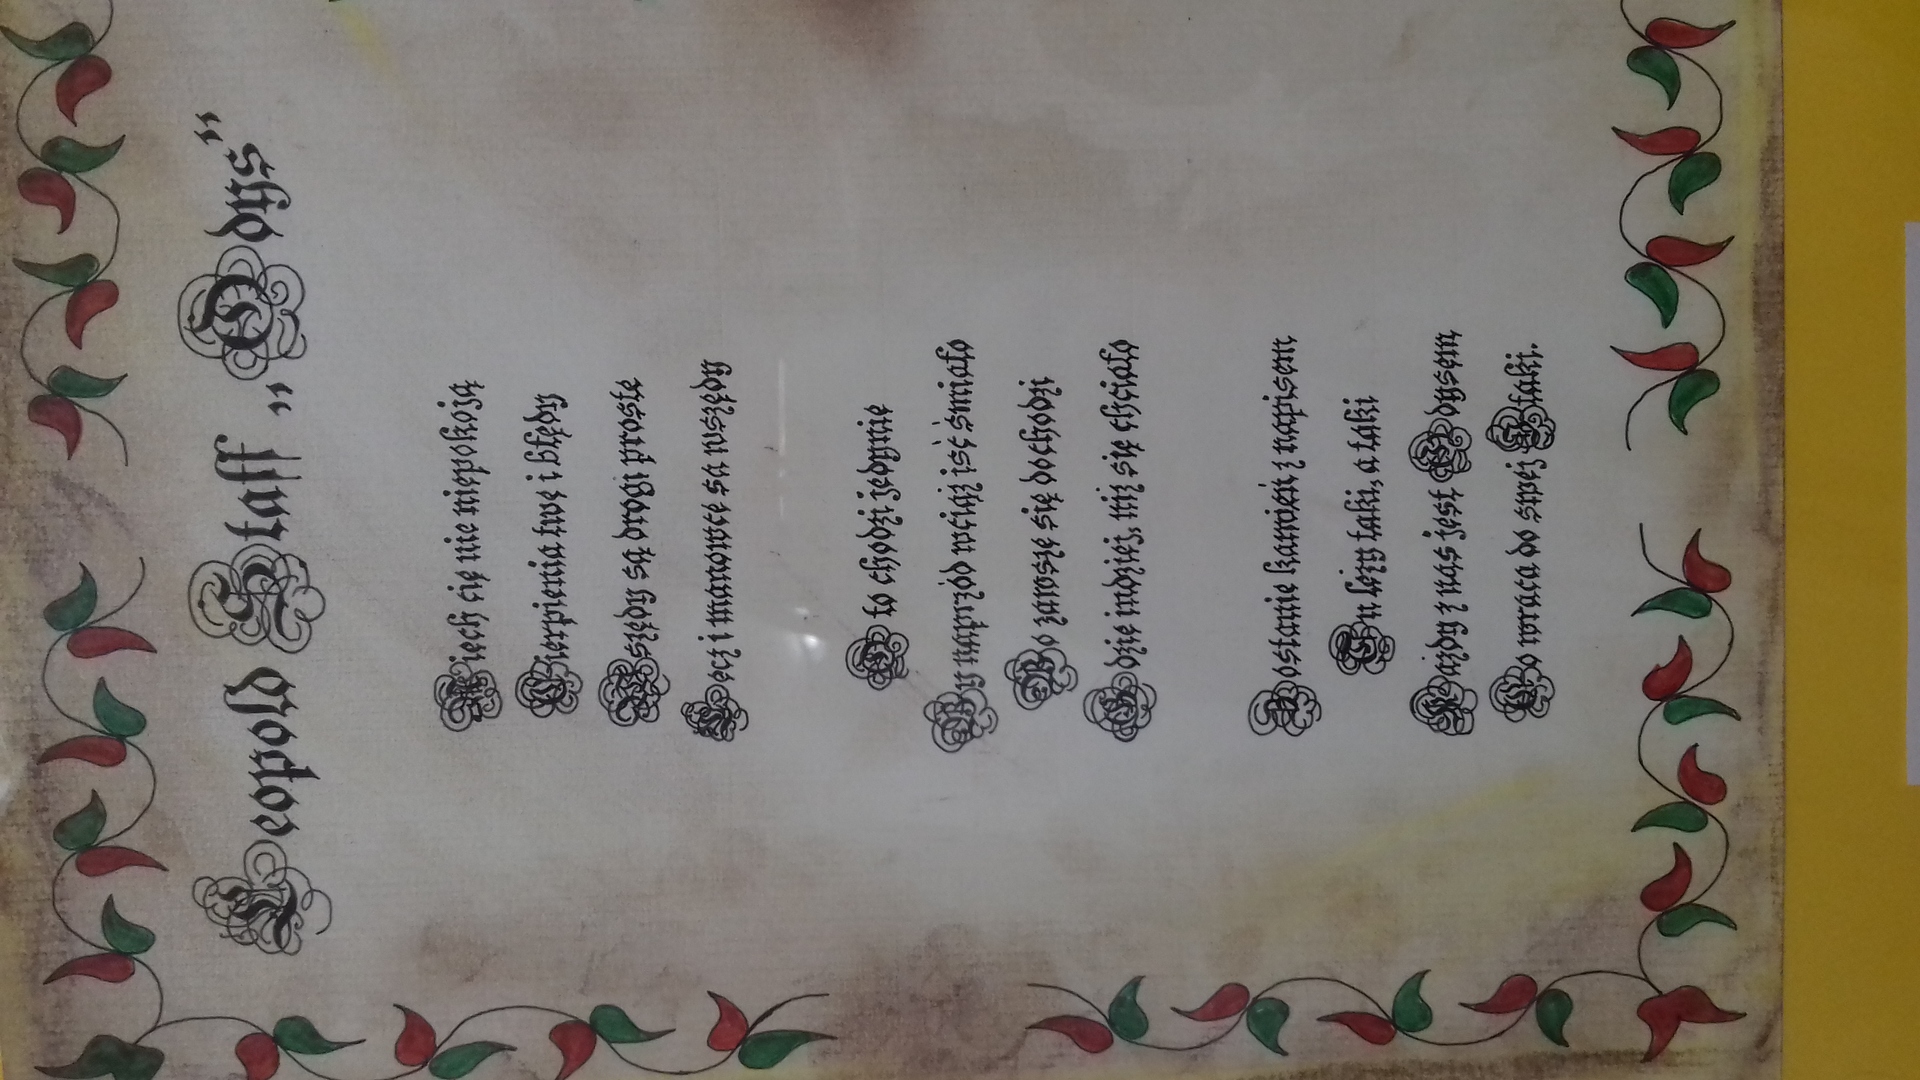 Leopold Staff „Odys”
Niech cię nie niepokoją
Cierpienia twe i błędy
Wszędy są drogi proste
Lecz i manowce sa wszędy
O to chodzi jedynie
By naprzód wciąż iść śmiało
Bo zawsze się dochodzi
Gdzie indziej, niż się chciało
Zostanie kamień z napisem
Tu leży taki, a taki
Każdy z nas jest Odysem
Co wraca do swej Itaki.